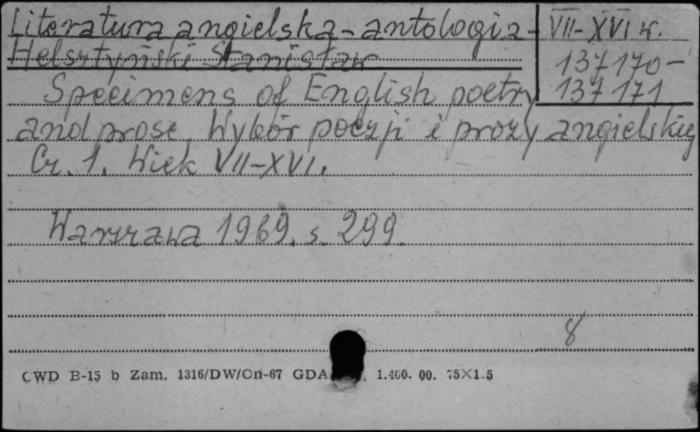 Literatura angielska-antologia- VII-XVI w.
Helsztyński Stanisław 137170-
Specimens of English poetry 137171
and prose. Wybór poezji i prozy angielskiej
Cz. 1. Wiek VII-XVI.
Warszawa 1969. s. 299.
8
CWD B-15 b Zam. 1316/DW/On-67 GDA 1.400. 00. 75×1 5